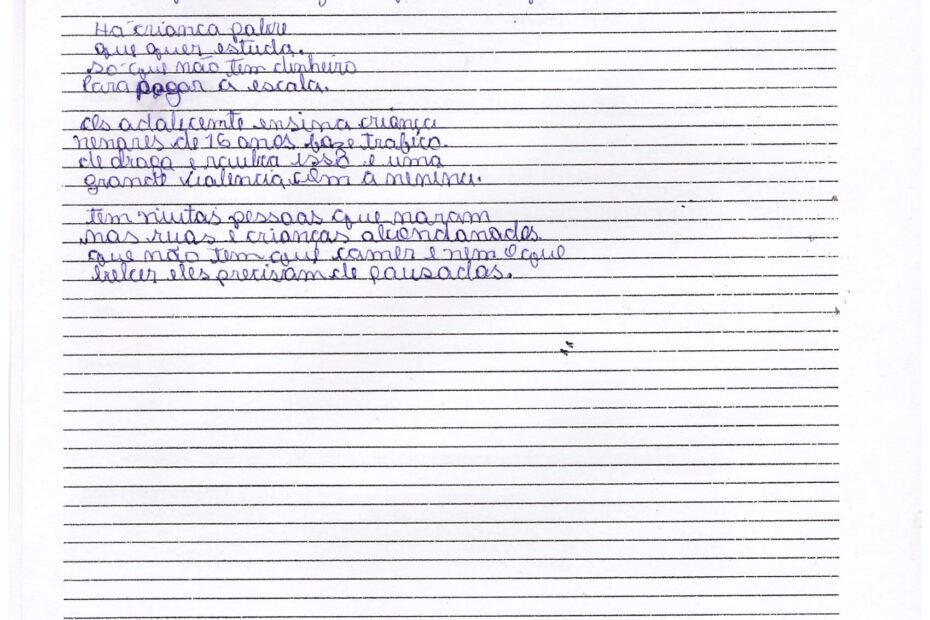 Há criança pobre
que quer estuda.
so que não tem dinheiro
para pagar a escola.
Os adolecente ensina criança
menores de 16 anos faze trafico
de droga e rouba isso e uma
grande violencia com a menina.
tem muitas pessoas que moram
nas ruas e crianças abondonados
que não tem que comer e nem o que
beber eles precisam de pousadas.